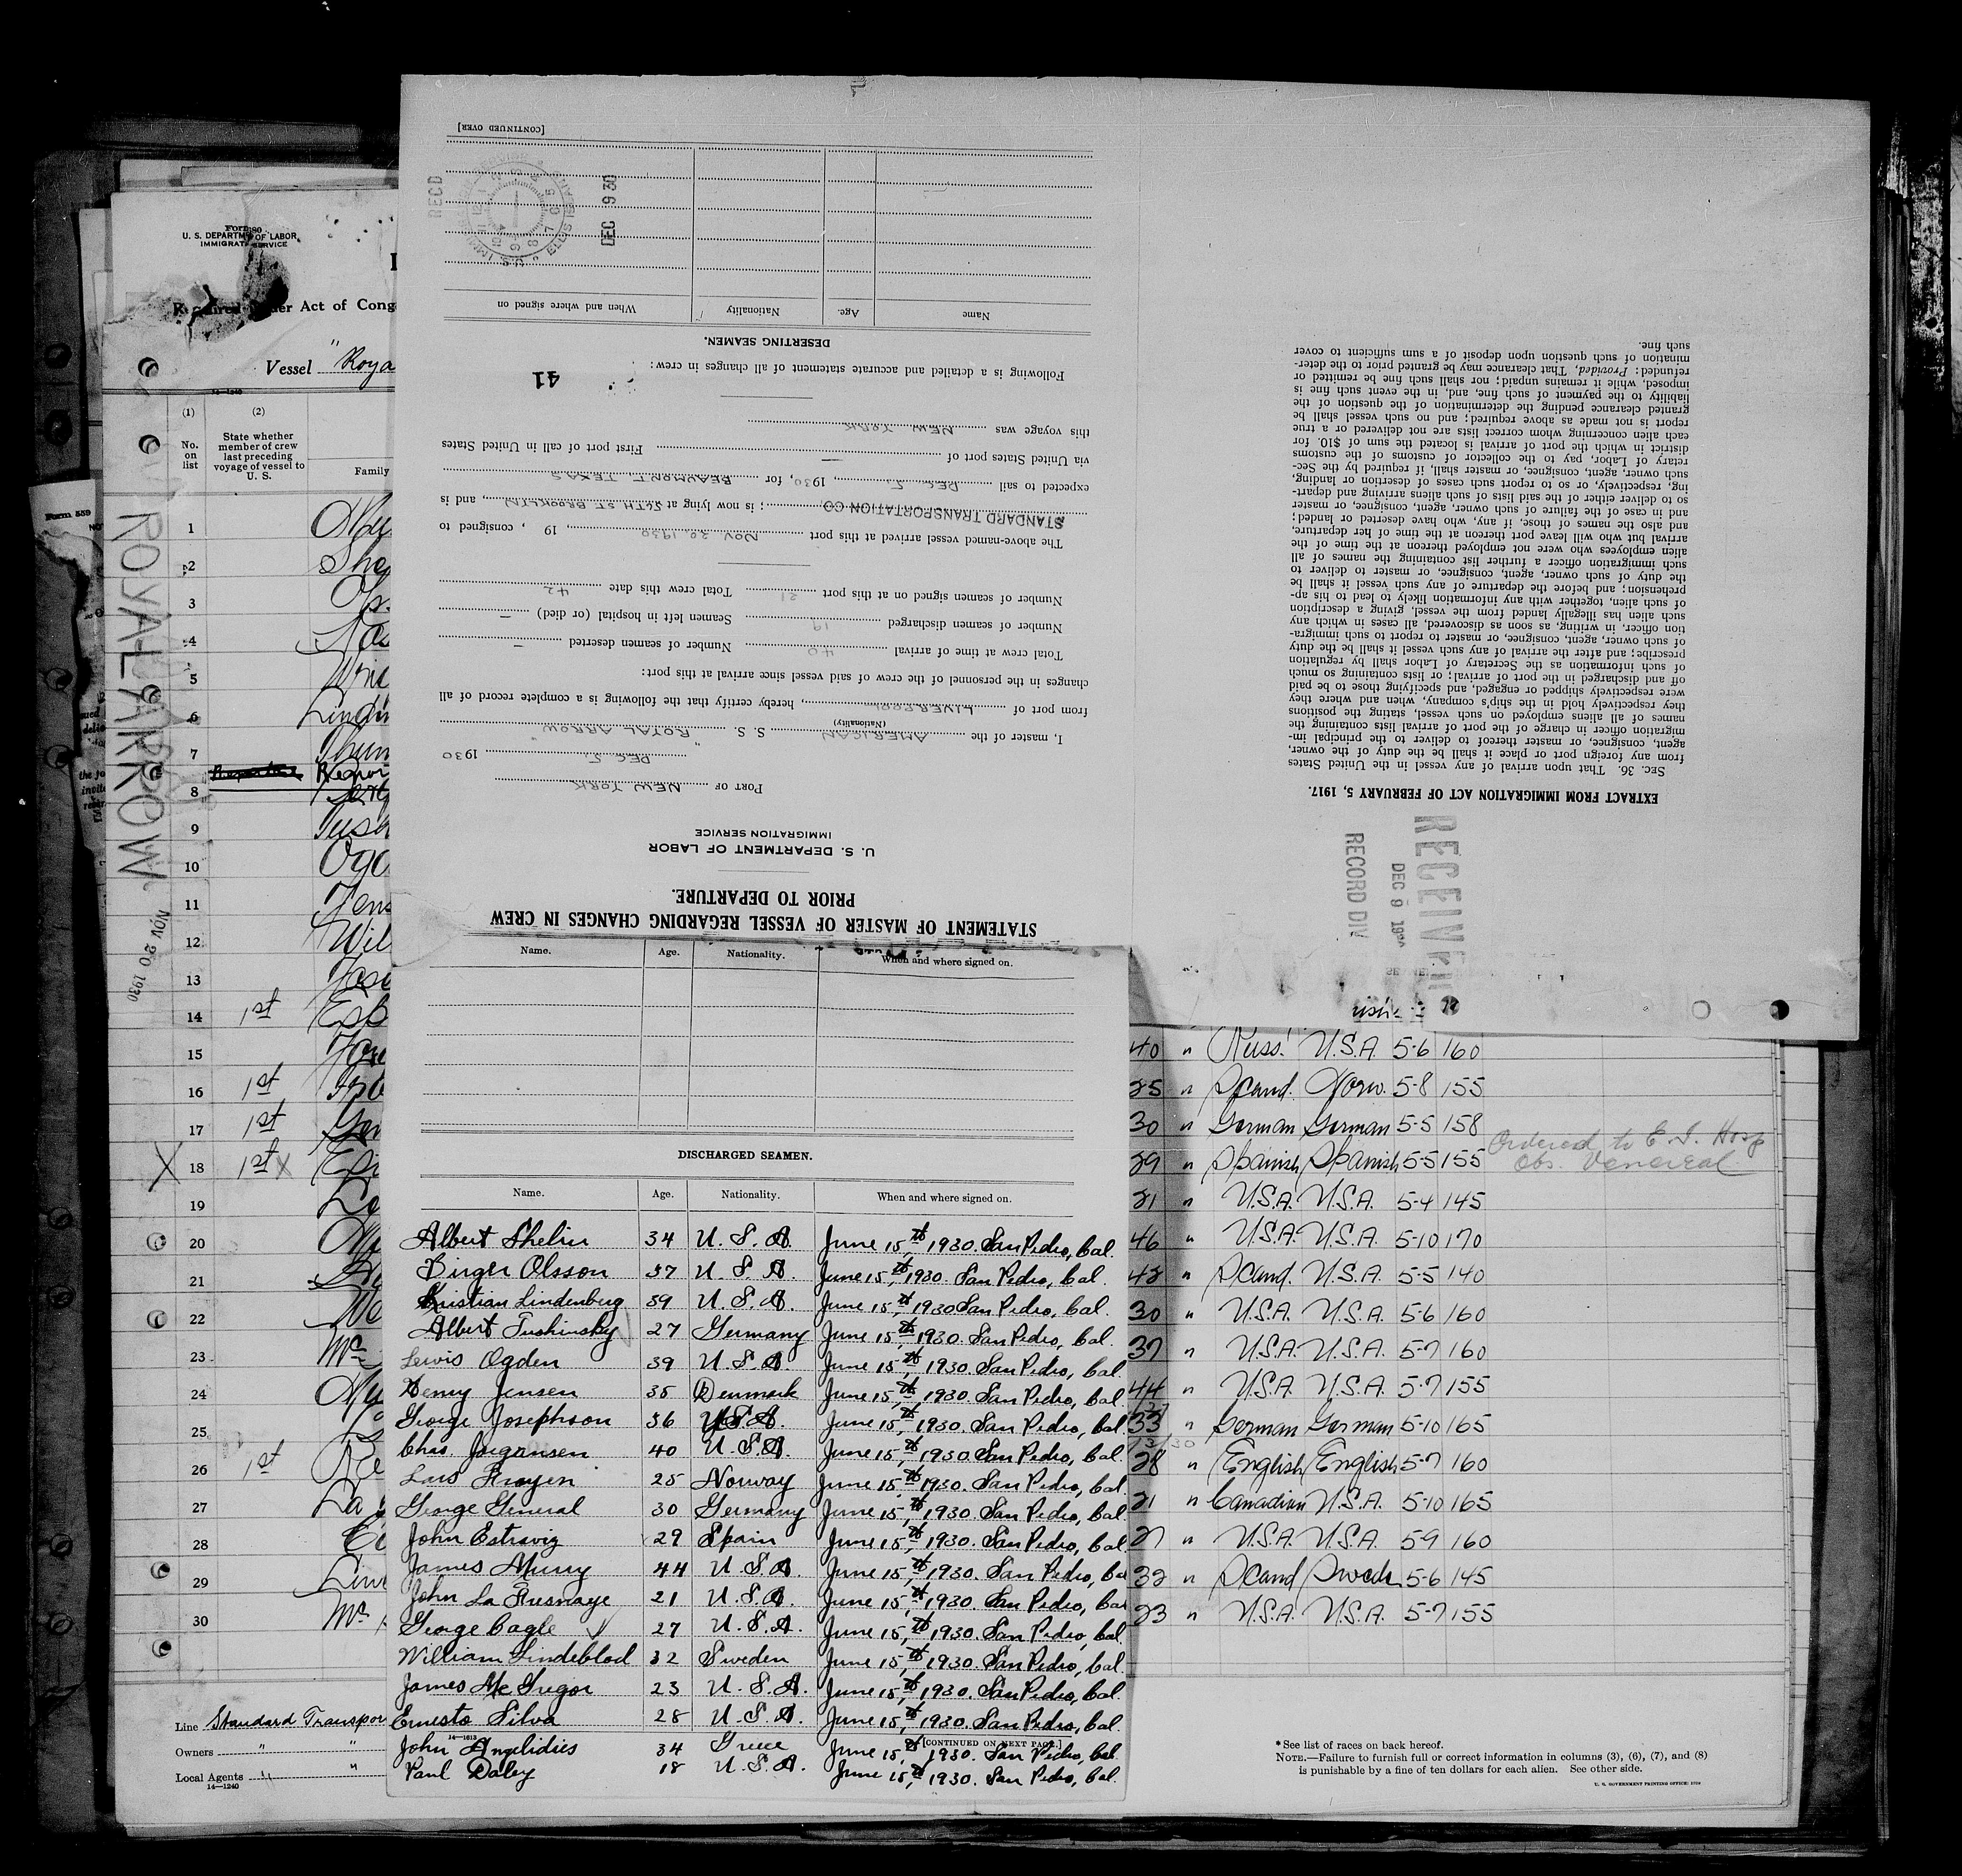 U. S. DEPARTMENT OF LABOR
IMMIGRATION SERVICE
Act of Cong
Vessel "Roya
14—1240
(1) (2)
No. on list
State whether member of crew last preceding voyage of vessel to U. S.
Family
Form 559
ROYAL ARROW
NOV 20 1930
1
2
3
4
5
6
7
8
9
10
11
12
13
14 1st
15
16 1st
17 1st
X 18 1st X
19
20
21
22
23
24
25
26 1st
27
28
29
30
Line Standard Transpor
Owners " "
Local Agents " "
14—1240
STATEMENT OF MASTER OF VESSEL REGARDING CHANGES IN CREW
PRIOR TO DEPARTURE.
U. S. DEPARTMENT OF LABOR
IMMIGRATION SERVICE
PORT OF NEW YORK
DEC 5, 1930
I, master of the AMERICAN S. S. "ROYAL ARROW"
(Nationality)
from port of LIVERPOOL, hereby certify that the following is a complete record of all
changes in the personnel of the crew of said vessel since arrival at this port:
Total crew at time of arrival 40 Number of seamen deserted —
Number of seamen discharged 19 Seamen left in hospital (or died) —
Number of seamen signed on at this port 21 Total crew this date 42
The above-named vessel arrived at this port NOV. 1930, 19 , consigned to
STANDARD TRANSPORTATION CO; is now lying at ST. BROOKLYN, and is
expected to sail DEC 5, 1930, for BEAUMONT TEXAS
via United States port of — First port of call in United States
this voyage was NEW YORK
Following is a detailed and accurate statement of all changes in crew:
41
DESERTING SEAMEN.
Name Age. Nationality When and where signed on
[CONTINUED OVER]
RECD
DEC 9 30
RECEIVED
DEC 9
RECORD DIV
EXTRACT FROM IMMIGRATION ACT OF FEBRUARY 5, 1917.
SEC. 36. That upon arrival of any vessel in the United States
from any foreign port or place it shall be the duty of the owner,
agent, consignee, or master thereof to deliver to the principal im-
migration officer in charge of the port of arrival lists containing the
names of all aliens employed on such vessel, stating the positions
they respectively hold in the ship's company, when and where they
were respectively shipped or engaged, and specifying those to be paid
off and discharged in the port of arrival; or lists containing so much
of such information as the Secretary of Labor shall by regulation
prescribe; and after the arrival of any such vessel it shall be the duty
of such owner, agent, consignee, or master to report to such immigra-
tion officer, in writing, as soon as discovered, all cases in which any
such alien has illegally landed from the vessel, giving a description
of such alien, together with any information likely to lead to his ap-
prehension; and before the departure of any such vessel it shall be
the duty of such owner, agent, consignee, or master to deliver to
such immigration officer a further list containing the names of all
alien employees who were not employed thereon at the time of the
arrival but who will leave port thereon at the time of her departure,
and also the names of those, if any, who have deserted or landed;
and in case of the failure of such owner, agent, consignee, or master
so to deliver either of the said lists of such aliens arriving and depart-
ing, respectively, or so to report such cases of desertion or landing,
such owner, agent, consignee, or master shall, if required by the Sec-
retary of Labor, pay to the collector of customs of the customs
district in which the port of arrival is located the sum of $10. for
each alien concerning whom correct lists are not delivered or a true
report is not made as above required; and no such vessel shall be
granted clearance pending the determination of the question of the
liability to the payment of such fine, and, in the event such fine is
imposed, while it remains unpaid; nor shall such fine be remitted or
refunded: Provided, That clearance may be granted prior to the deter-
mination of such question upon deposit of a sum sufficient to cover
such fine.
Name. Age. Nationality. When and where signed on.
DISCHARGED SEAMEN.
Name. Age. Nationality. When and where signed on.
Albert Shelin 34 U. S. A. June 15,th 1930. San Pedro, Cal.
Birger Olsson 37 U. S. A. June 15,th 1930. San Pedro, Cal.
Kristian Lindenberg 39 U. S. A. June 15,th 1930 San Pedro, Cal.
Albert Tushinsky 27 Germany June 15,th 1930. San Pedro, Cal.
Lewis Ogden 39 U. S. A. June 15,th 1930. San Pedro, Cal.
Henry Jensen 35 Denmark June 15,th 1930. San Pedro, Cal.
George Josephson 36 U.S.A. June 15,th 1930. San Pedro, Cal.
Chas. Jorgensen 40 U.S.A. June 15,th 1930. San Pedro, Cal.
Lars Froyen 25 Norway June 15,th 1930. San Pedro, Cal.
George General 30 Germany June 15,th 1930. San Pedro, Cal.
John Estraviz 29 Spain June 15,th 1930. San Pedro, Cal.
James Murry 44 U. S. A. June 15,th 1930. San Pedro, Cal
John La Fresnaye 21 U. S. A. June 15,th 1930. San Pedro, Cal
George Cagle 27 U. S. A. June 15,th 1930. San Pedro, Cal.
William Lindeblad 32 Sweden June 15,th 1930. San Pedro, Cal.
James McGregor 23 U. S. A. June 15,th 1930. San Pedro, Cal.
Ernesto Silva 28 U. S. A. June 15,th 1930. San Pedro, Cal.
14—1613 [CONTINUED ON NEXT PAGE.]
John Angelidies 34 Greece June 15,th 1930. San Pedro, Cal.
Paul Daley 18 U. S. A. June 15,th 1930. San Pedro, Cal.
40 " Russ. U.S.A. 5-6 160
25 " Scand. Norw. 5-8 155
30 " German German 5-5 158
29 " Spanish Spanish 5-5 155 Ordered to E. I. Hosp
Obs. Venereal
21 " U.S.A. U.S.A. 5-4 145
46 " U.S.A. U.S.A. 5-10 170
42 " Scand. U.S.A. 5-5 140
30 " U.S.A. U.S.A. 5-6 160
37 " U.S.A. U.S.A. 5-7 160
44 " U.S.A. U.S.A. 5-7 155
33 " German German 5-10 165
28 " English English 5-7 160
21 " Canadian U.S.A. 5-10 165
27 " U.S.A. U.S.A. 5-9 160
32 " Scand Swede 5-6 145
23 " U.S.A. U.S.A. 5-7 155
* See list of races on back hereof.
NOTE.—Failure to furnish full or correct information in columns (3), (6), (7), and (8)
is punishable by a fine of ten dollars for each alien. See other side.
U. S. GOVERNMENT PRINTING OFFICE: